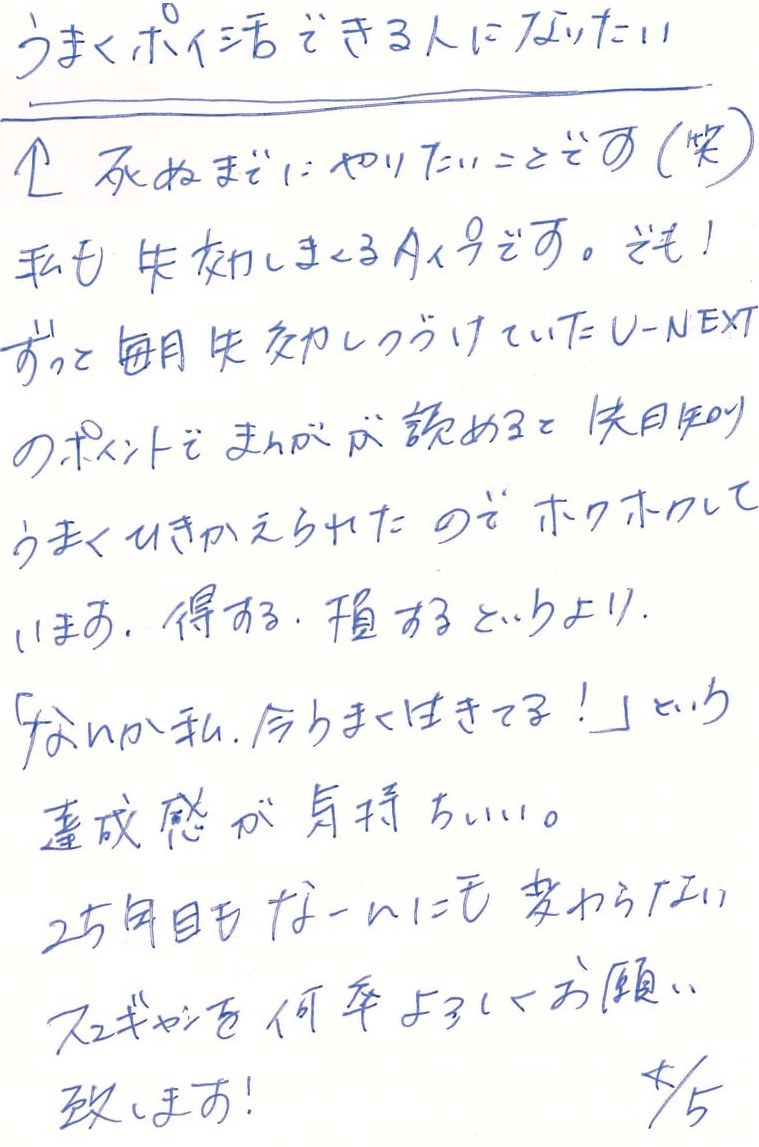 うまくポイ活できる人になりたい
↑ 死ぬまでにやりたいことです(笑)
私も失効しまくるタイプです。でも!
ずっと毎月失効しつづけていたU-NEXT
のポイントでまんがが読めると
うまくひきかえられたのでホクホクして
います。得する・損するというより、
「なんか私、今うまく生きてる!」という
達成感が気持ちいい。
25年目もなーんにも変わらない
スユギャンを何卒よろしくお願い
致します!
/5